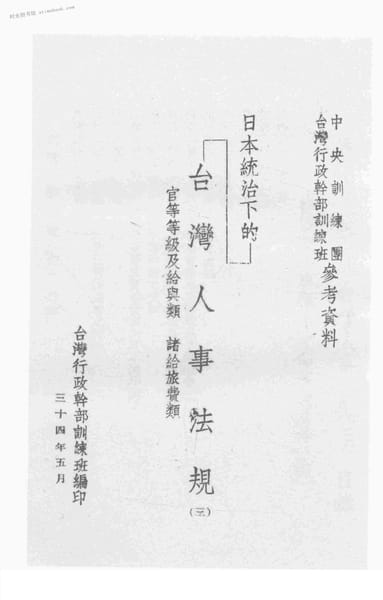 中央訓練團
台灣行政幹部訓練班
參考資料
日本統治下的
台灣人事法規(三)
官等等級及給與類 諸給旅費類
台灣行政幹部訓練班編印
三十四年五月